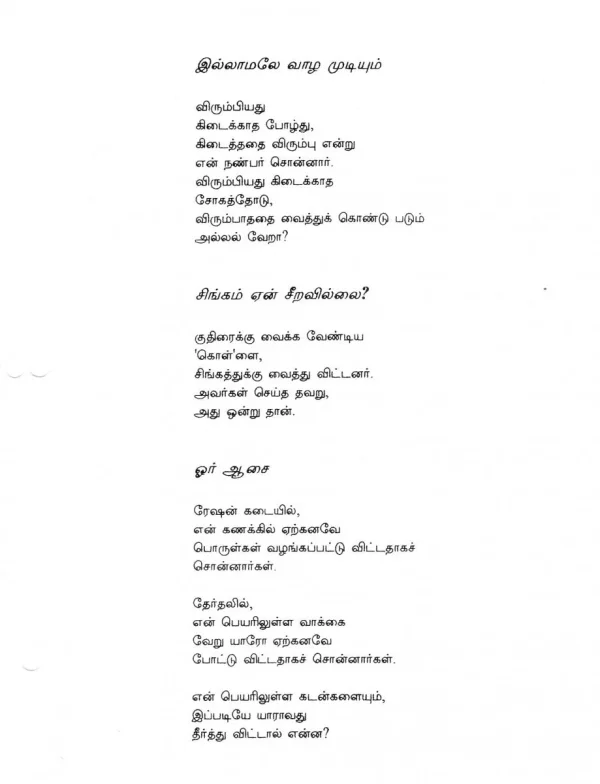 இல்லாமலே வாழ முடியும்
விரும்பியது
கிடைக்காத போழ்து,
கிடைத்ததை விரும்பு என்று
என் நண்பர் சொன்னார்.
விரும்பியது கிடைக்காத
சோகத்தோடு,
விரும்பாததை வைத்துக் கொண்டு படும்
அல்லல் வேறா?
சிங்கம் ஏன் சீறவில்லை?
குதிரைக்கு வைக்க வேண்டிய
'கொள்'ளை,
சிங்கத்துக்கு வைத்து விட்டனர்.
அவர்கள் செய்த தவறு,
அது ஒன்று தான்.
ஓர் ஆசை
ரேஷன் கடையில்,
என் கணக்கில் ஏற்கனவே
பொருள்கள் வழங்கப்பட்டு விட்டதாகச்
சொன்னார்கள்.
தேர்தலில்,
என் பெயரிலுள்ள வாக்கை
வேறு யாரோ ஏற்கனவே
போட்டு விட்டதாகச் சொன்னார்கள்.
என் பெயரிலுள்ள கடன்களையும்,
இப்படியே யாராவது
தீர்த்து விட்டால் என்ன?